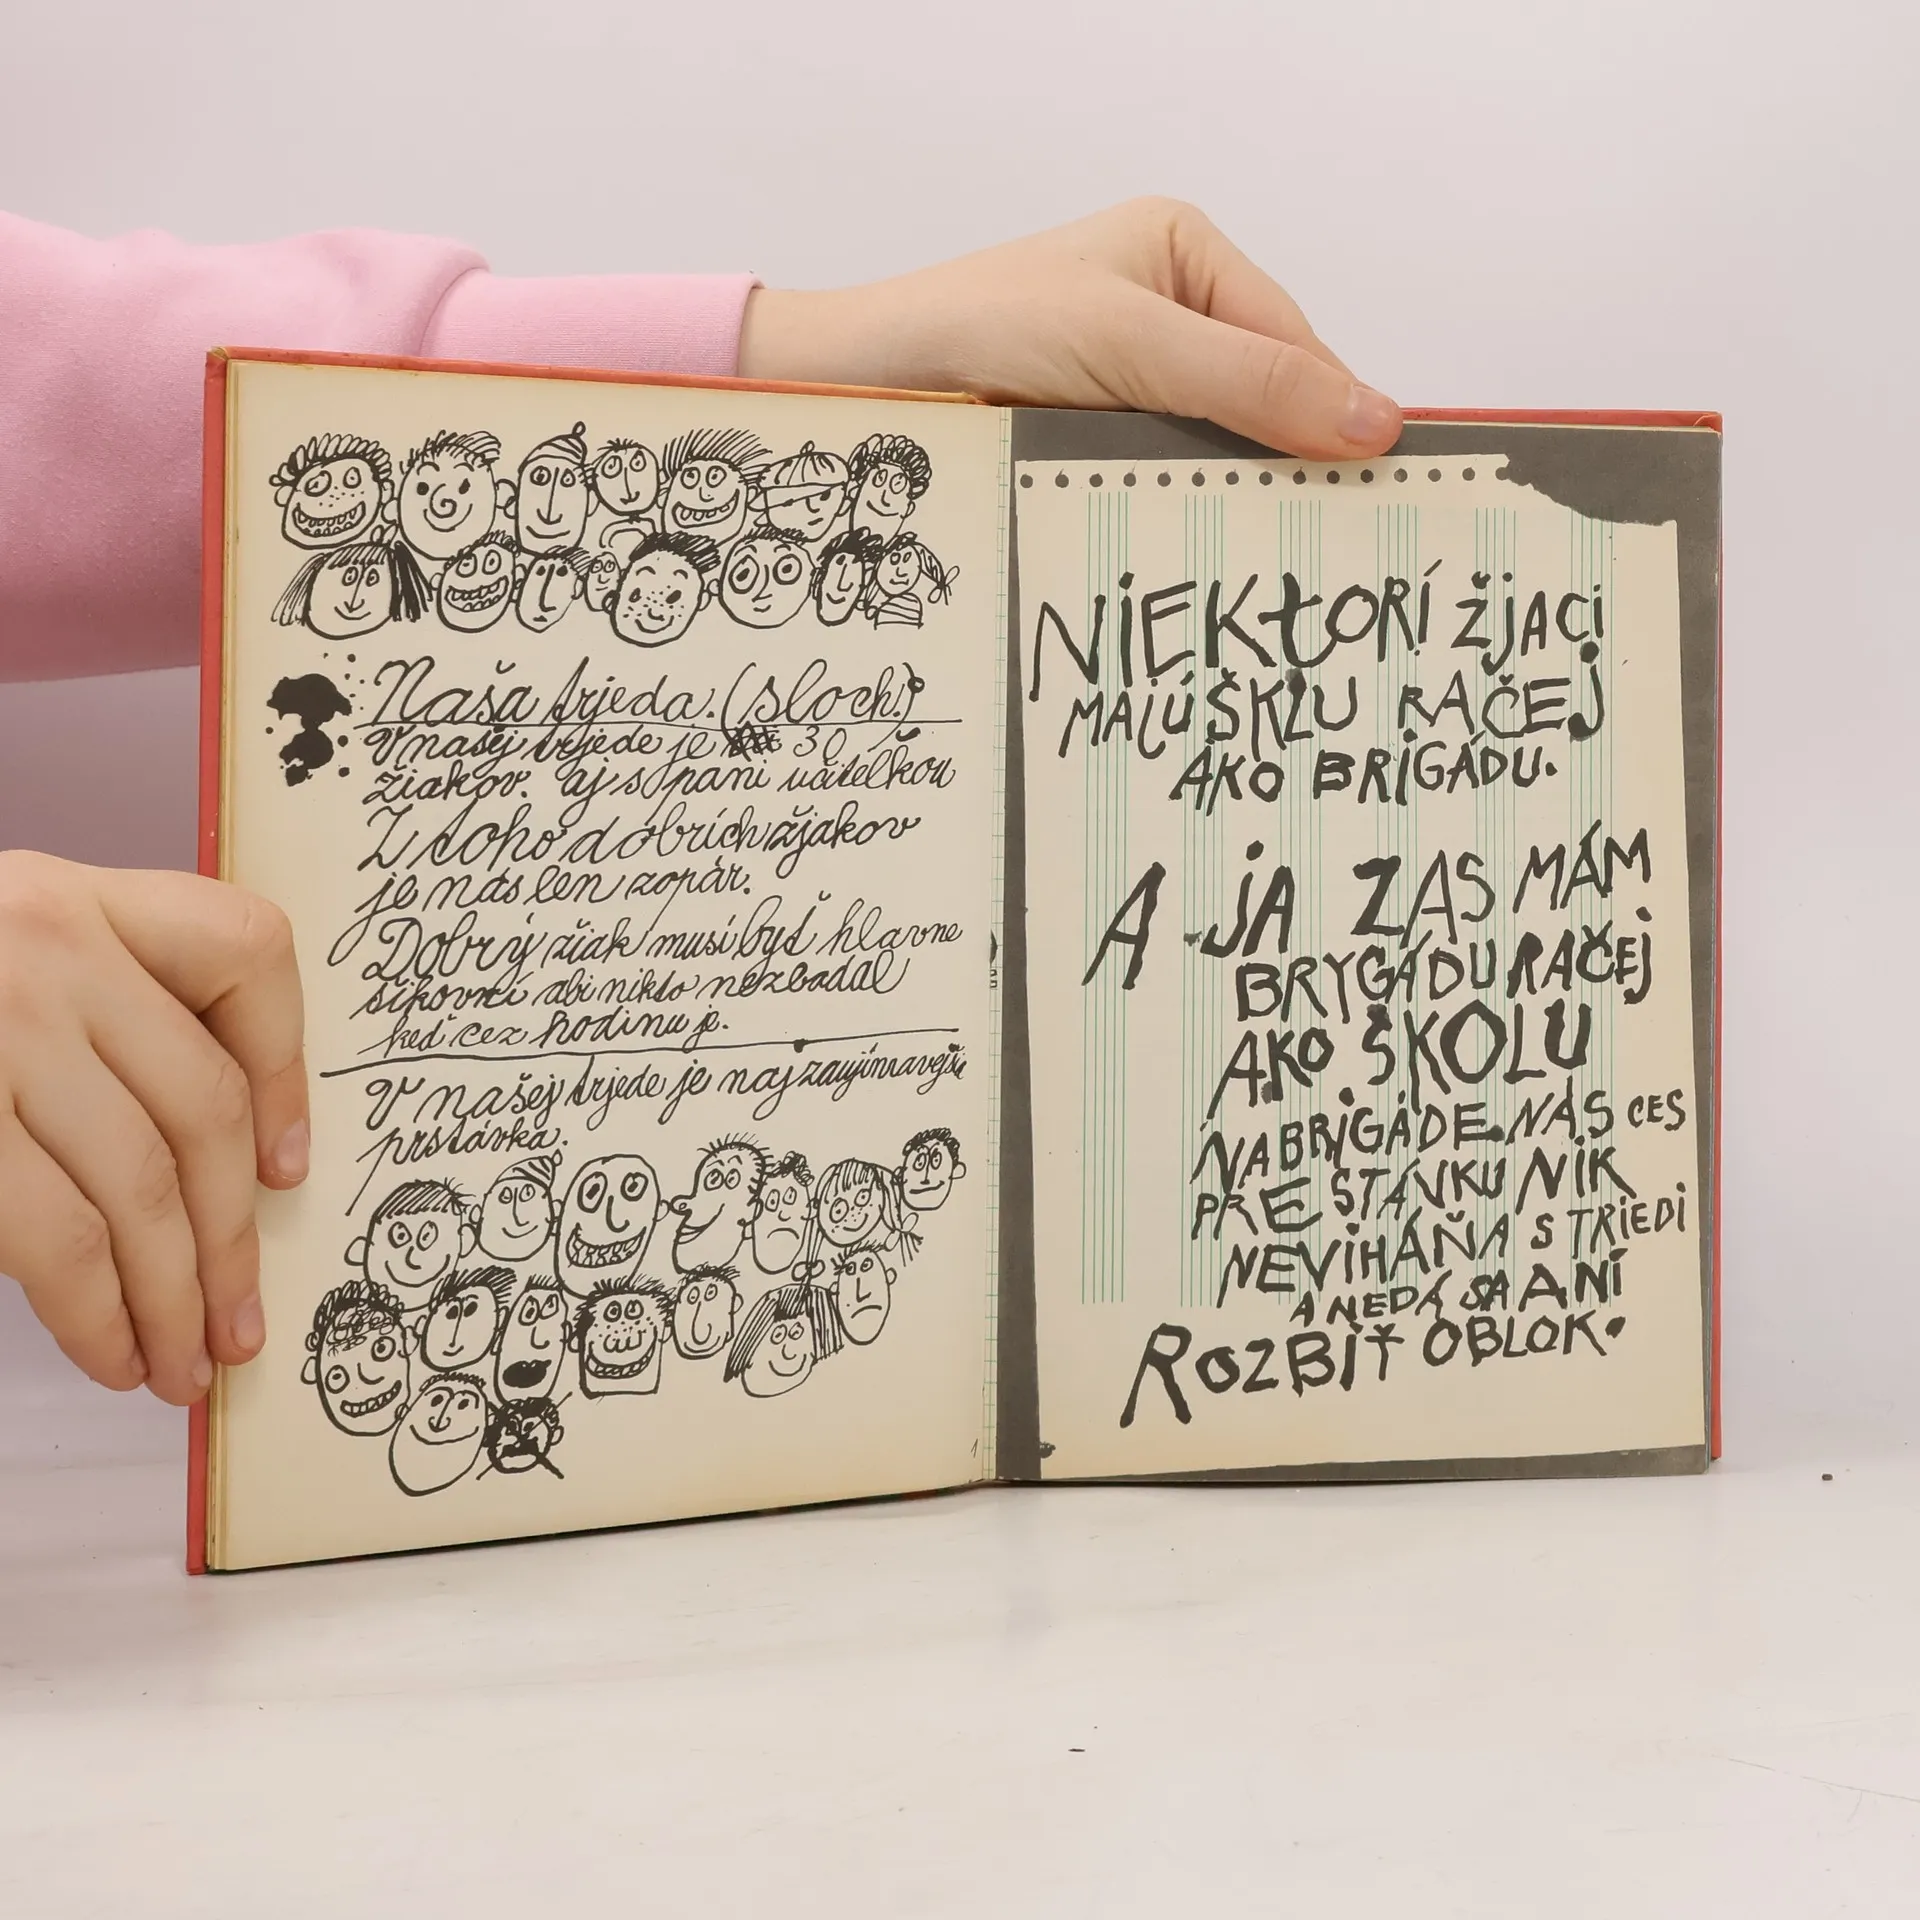 Naša trjeda. (sloch.)
V našej trjede je 30
žiakov. aj s pani učitelkou
Z toho dobrích žjakov
je nás len zopár.
Dobrý žiak musí byť hlavne
šikovní abi nikto nezbadal
keď cez hodinu je.
V našej trjede je najzaujímavejšia
prstávka.
1
NiEKtORÍ ŽjACi
MAjÚ ŠKLU RAČEJ
AKO BRiGÁDU.
A jA ZAS MÁM
BRYGÁDU RAČEj
AKO ŠKOLU
NA BRiGÁDE NÁS CES
PRESTÁVKU NiK
NEViHÁŇA S TRiEDi
A NEDÁ SA ANi
ROZBiŤ OBLOK.